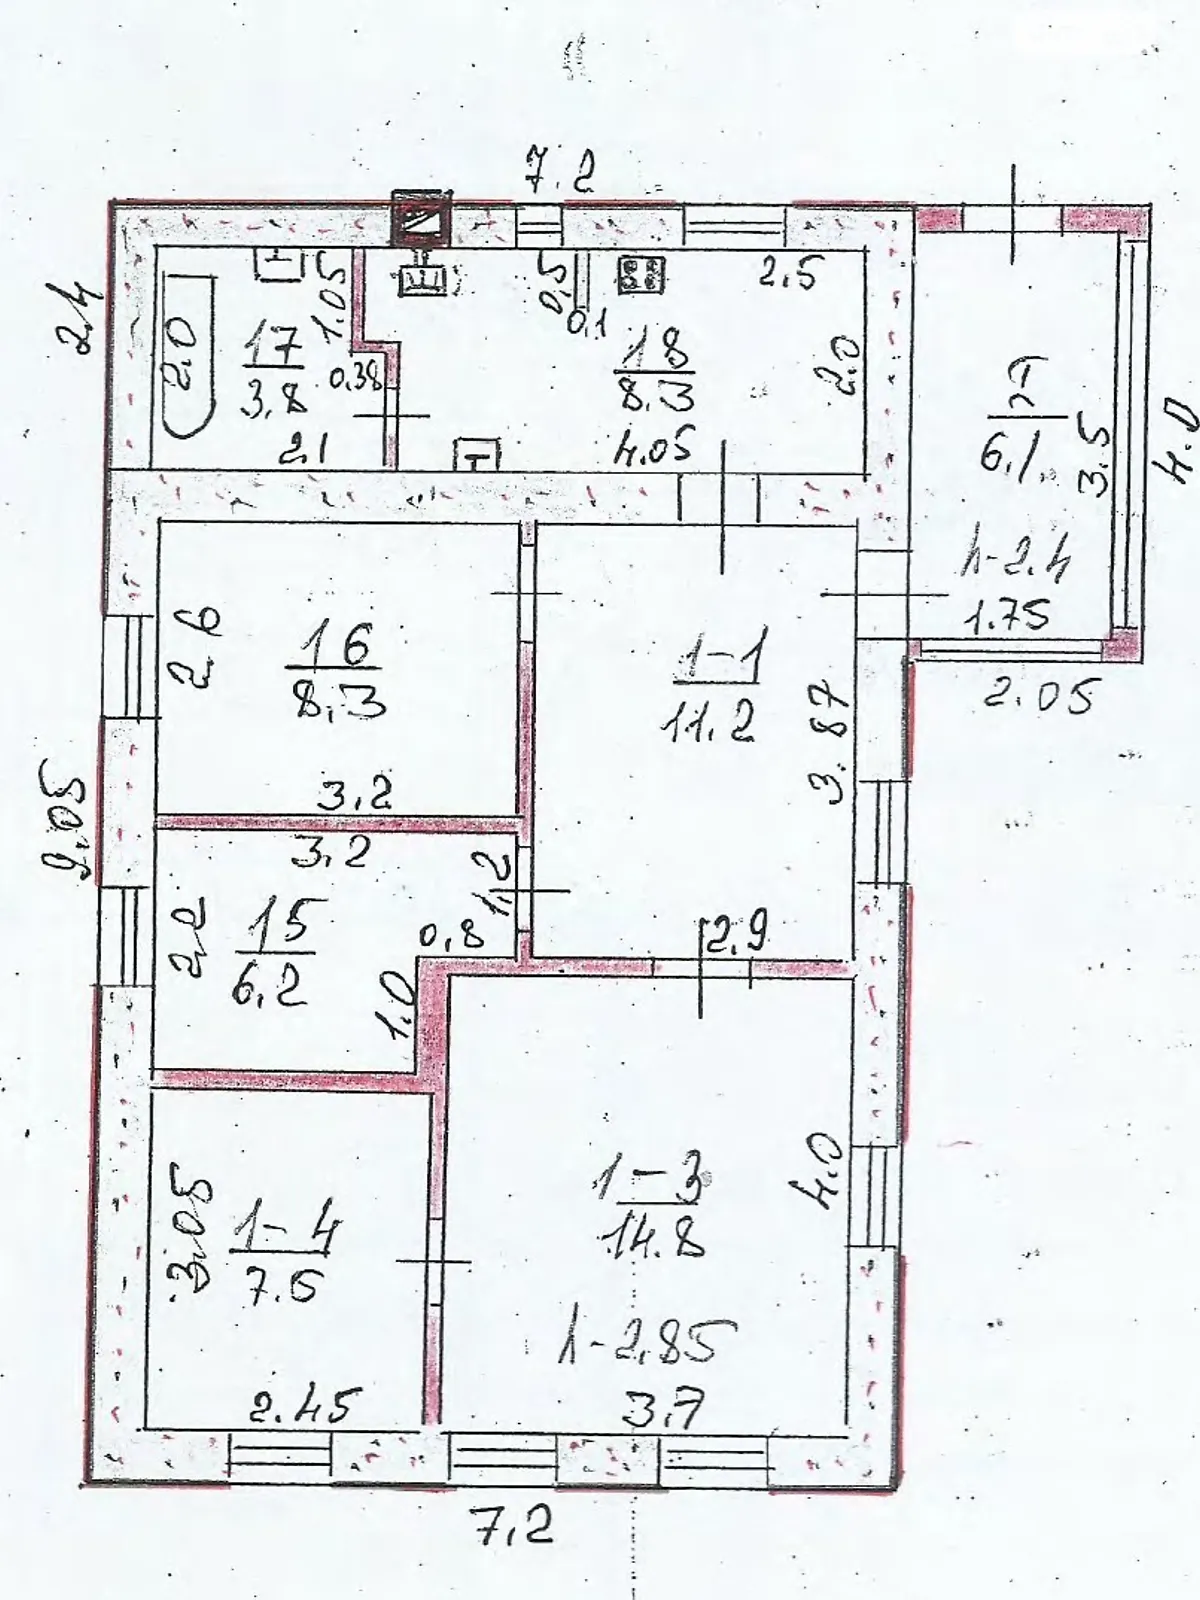 7.2
2.4
17
3.8
2.0
1.05
0.38
2.1
0,5
0,1
2.5
18
8.3
2.0
4.05
6.1
3.5
4.0
h-2.4
1.75
2.05
2.6
16
8,3
3.2
1-1
11.2
3.87
9.05
3.2
2,2
15
6,2
1,2
0,8
1.0
2.9
3.05
1-4
7.5
2.45
1-3
14.8
4.0
h-2.85
3.7
7,2